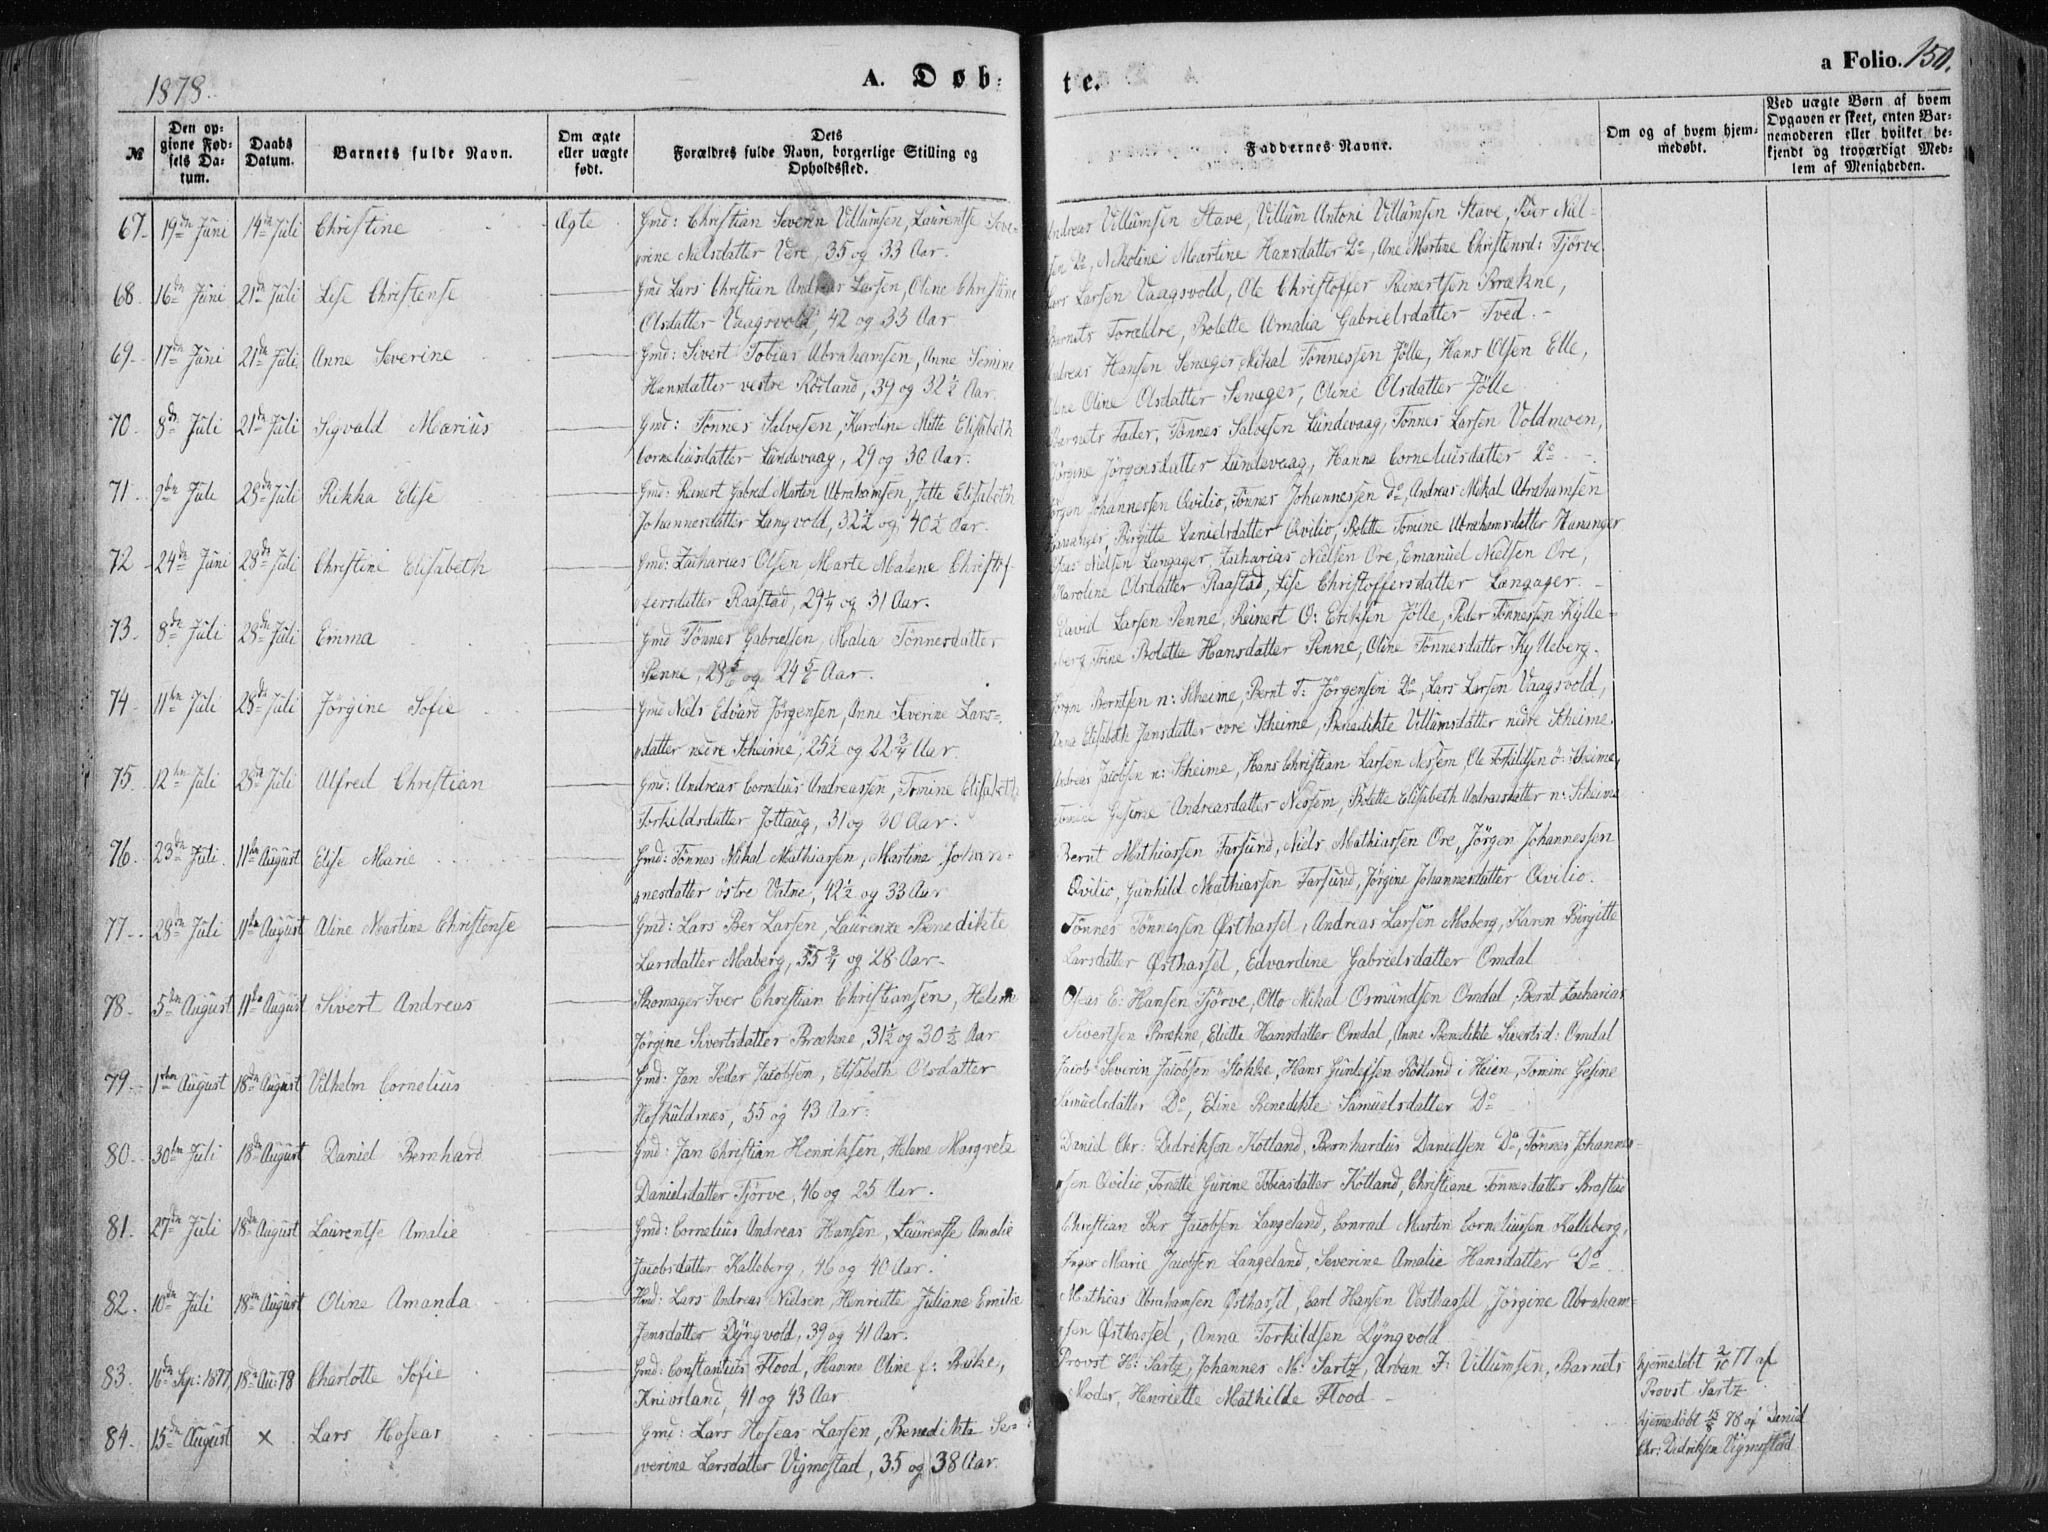 1878.
A. Døb-
te.
a Folio. 150.
№
Den op-
givne Fød-
sels Da-
tum.
Daabs
Datum.
Barnets fulde Navn.
Om ægte
eller uægte
født.
Dets
Forældres fulde Navn, borgerlige Stilling og
Opholdssted.
Faddernes Navne.
Om og af hvem hjem-
medøbt.
Ved uægte Børn af hvem
Opgaven er skeet, enten Bar-
nemoderen eller hvilket be-
kjendt og troværdigt Med-
lem af Menigheden.
67. 19de Juni 14de Juli Christine Ægte Gmd: Christian Severin Villumsen, Laurentse Seve- Andreas Villumsen Stave, Villum Antoni Villumsen Stave, Peer Niel-
rine Nielsdatter Vere, 35 og 33 Aar. sen Do, Nikoline Martine Hansdatter Do, Ane Martine Christensd: Tjörve
68 16de Juni 21de Juli Lise Christense Gmd Lars Christian Andreas Larsen, Oline Christine Lars Larsen Vaagsvold, Ole Christoffer Reinertsen Brækne,
Olsdatter Vaagsvold, 42 og 33 Aar. Barnets Forældre, Bolette Amalia Gabrielsdatter Tved.
69 17de Juni 21de Juli Anne Severine Gmd: Sivert Tobias Abrahamsen, Anne Semine Andreas Hansen Seneger, Mikal Tönnessen Jölle, Hans Olsen Elle,
Hansdatter vestre Rörland, 39 og 32½ Aar. Oline Olsdatter Seneger, Oline Olsdatter Jölle
70. 8de Juli 21de Juli Sigvald Marius Gmd: Tönnes Salvesen, Karoline Mitte Elisabeth Barnets Fader, Tönnes Salvesen Lundevaag, Tönnes Larsen Voldmoen,
Corneliusdatter Lundevaag, 29 og 30 Aar. Jörgine Jörgensdatter Lundevaag, Hanne Corneliusdatter Do
71 9de Juli 28de Juli Rikka Elise Gmd: Reinert Gabriel Martin Abrahamsen, Jette Elisabeth Jörgen Johannessen Qvilio, Tönnes Johannessen Do, Andreas Mikal Abrahamsen
Johannesdatter Langvold, 32½ og 40½ Aar. Hananger Birgitte Danielsdatter Qvilio, Bolette Tomine Abrahamsdatter Hananger
72 24de Juni 28de Juli Christine Elisabeth Gmd: Zacharias Olsen Marte Malene Christof- Nielsen Langager, Zacharias Nielsen Ore, Emanuel Nielsen Ore,
fersdatter Raastad, 29¼ og 31 Aar. Karoline Olsdatter Raastad, Lise Christoffersdatter Langager.
73. 8de Juli 28de Juli Emma Gmd Tönnes Gabrielsen, Malia Tönnesdatter David Larsen Penne, Reinert O: Eriksen Jölle, Peder Tönnessen Kylle-
Penne, 28⅚ og 24⅚ Aar. berg Trine Bolette Hansdatter Penne, Oline Tönnesdatter Kylleberg.
74 11te Juli 28de Juli Jörgine Sofie Gmd Niels Edvard Jörgensen, Anne Severine Lars- Jörgen Berntsen n: Scheime, Bernt T: Jörgensen Do, Lars Larsen Vaagsvold,
datter nedre Scheime, 25½ og 22¾ Aar. Anna Elisabeth Jansdatter övre Scheime, Benedikte Villumsdatter nedre Scheime.
75. 12te Juli 28de Juli Alfred Christian Gmd: Andreas Cornelius Andreassen, Tomine Elisabeth Andreas Jacobsen n: Scheime, Hans Christian Larsen Nessem, Ole Torkildsen ö: Scheime,
Torkildsdatter Jottaug, 31 og 30 Aar. Tomine Gesine Andreasdatter Nessem, Bolette Elisabeth Andreasdatter n: Scheime
76. 23de Juli 11te August Elise Marie Gmd: Tönnes Mikal Mathiassen, Martine Johan- Bernt Mathiassen Farsund, Niels Mathiassen Ore, Jörgen Johannessen
nesdatter östre Vatne, 42½ og 33 Aar Qvilio, Gunhild Mathiassen Farsund, Jörgine Johannesdatter Qvilio.
77. 28de Juli 11te August Aline Martine Christense Gmd: Lars Ber Larsen, Laurenze Benedikte Tönnes Tönnessen Østhassel, Andreas Larsen Maberg, Karen Birgitte
Larsdatter Maberg, 35¾ og 28 Aar. Larsdatter Østhassel, Edvardine Gabrielsdatter Omdal
78. 5te August 11te August Sivert Andreas Skomager Iver Christian Christiansen, Helene Oseas E: Hansen Tjörve, Otto Mikal Osmundsen Omdal, Bernt Zacharias
Jörgine Sivertsdatter Brækne, 31½ og 30½ Aar Sivertsen Brækne, Eliette Hansdatter Omdal, Anne Benedikte Sivertsd: Omdal
79. 1ste August 18de August Vilhelm Cornelius Gmd: Jan Peder Jacobsen, Elisabeth Olsdatter Jacob Severin Jacobsen Stokke, Hans Gunlefsen Rötland i Heien, Tomine Gesine
Huskuldnæs, 55 og 43 Aar. Samuelsdatter Do, Eline Benedikte Samuelsdatter Do
80. 30te Juli 18de August Daniel Bernhard Gmd: Jan Christian Henriksen, Helene Margrete Daniel Chr: Didriksen Kotland, Bernhardus Danielsen Do, Tönnes Johannes-
Danielsdatter Tjörve, 46 og 25 Aar. sen Qvilio, Tonette Gurine Tobiasdatter Kotland, Christiane Tönnesdatter Brastad
81. 27de Juli 18de August Laurentse Amalie Gmd: Cornelius Andreas Hansen, Laurentse Amalie Christian Ber Jacobsen Langeland, Conrad Martin Corneliussen Kalleberg,
Jacobsdatter Kalleberg, 46 og 40 Aar. Inger Marie Jacobsen Langeland, Severine Amalie Hansdatter Do
82. 10de Juli 18de August Oline Amanda Hmd: Lars Andreas Nielsen, Henriette Juliane Emilie Mathias Abrahamsen Østhassel, Carl Hansen Vesthassel, Jörgine Abraham-
Jensdatter Dyngvold, 39 og 41 Aar. sen Østhassel, Anna Torkildsen Dyngvold
83. 16de Sep: 1877, 18de Au: 78 Charlotte Sofie Gmd: Constantius Flood, Hanne Oline f: Buke, Provst H: Sartz, Johannes M: Sartz, Urban F: Villumsen, Barnets hjemmedöbt 2/10 77 af
Kniorland, 41 og 43 Aar. Moder, Henriette Mathilde Flood Provst Sartz
84. 15de August × Lars Hoseas Gmd: Lars Hoseas Larsen, Benedikte Se- hjemmedöbt 15/8 78 af Daniel
verine Larsdatter Vigmostad, 35 og 38 Aar. Chr: Didriksen Vigmostad